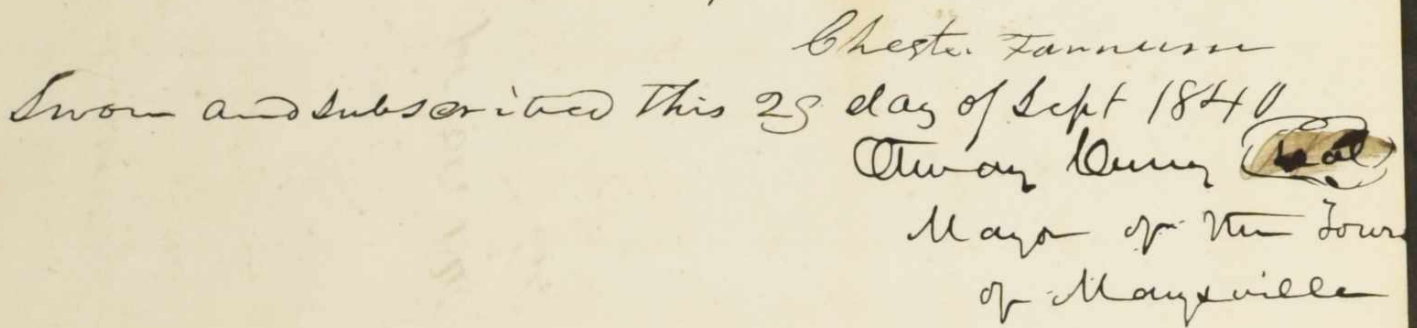 Chester Farnum
Sworn and subscribed this 29 day of Sept 1840
Otway Curry Seal
Mayor of the Town
of Marysville